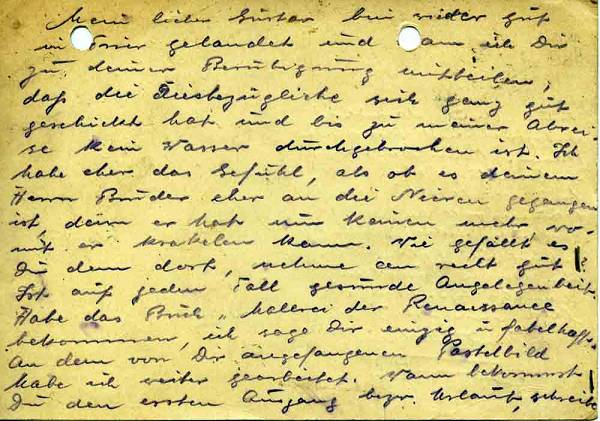 Mein lieber Gustav bin wieder gut
in Trier gelandet und kann ich Dir
zu deiner Beruhigung mitteilen,
daß die Diesbezügliche sich ganz gut
geschickt hat und bis zu meiner Abrei-
se kein Wasser durchgebrochen ist. Ich
habe eher das Gefühl, als ob es deinem
Herrn Bruder eher an die Nieren gegangen
ist, denn er hat nun keinen mehr, wo-
mit er krakelen kann. Wie gefällt es
Du dem dort, nehme an recht gut!
Ist auf jeden Fall gesunde Angelegenheit.
Habe das Buch „Malerei der Renaissance
bekommen, ich sage Dir einzig u. fabelhaft.
An dem von Dir angefangenen Pastellbild
habe ich weiter gearbeitet. Wann bekommst
Du den ersten Ausgang bezw. Urlaub, schreibe